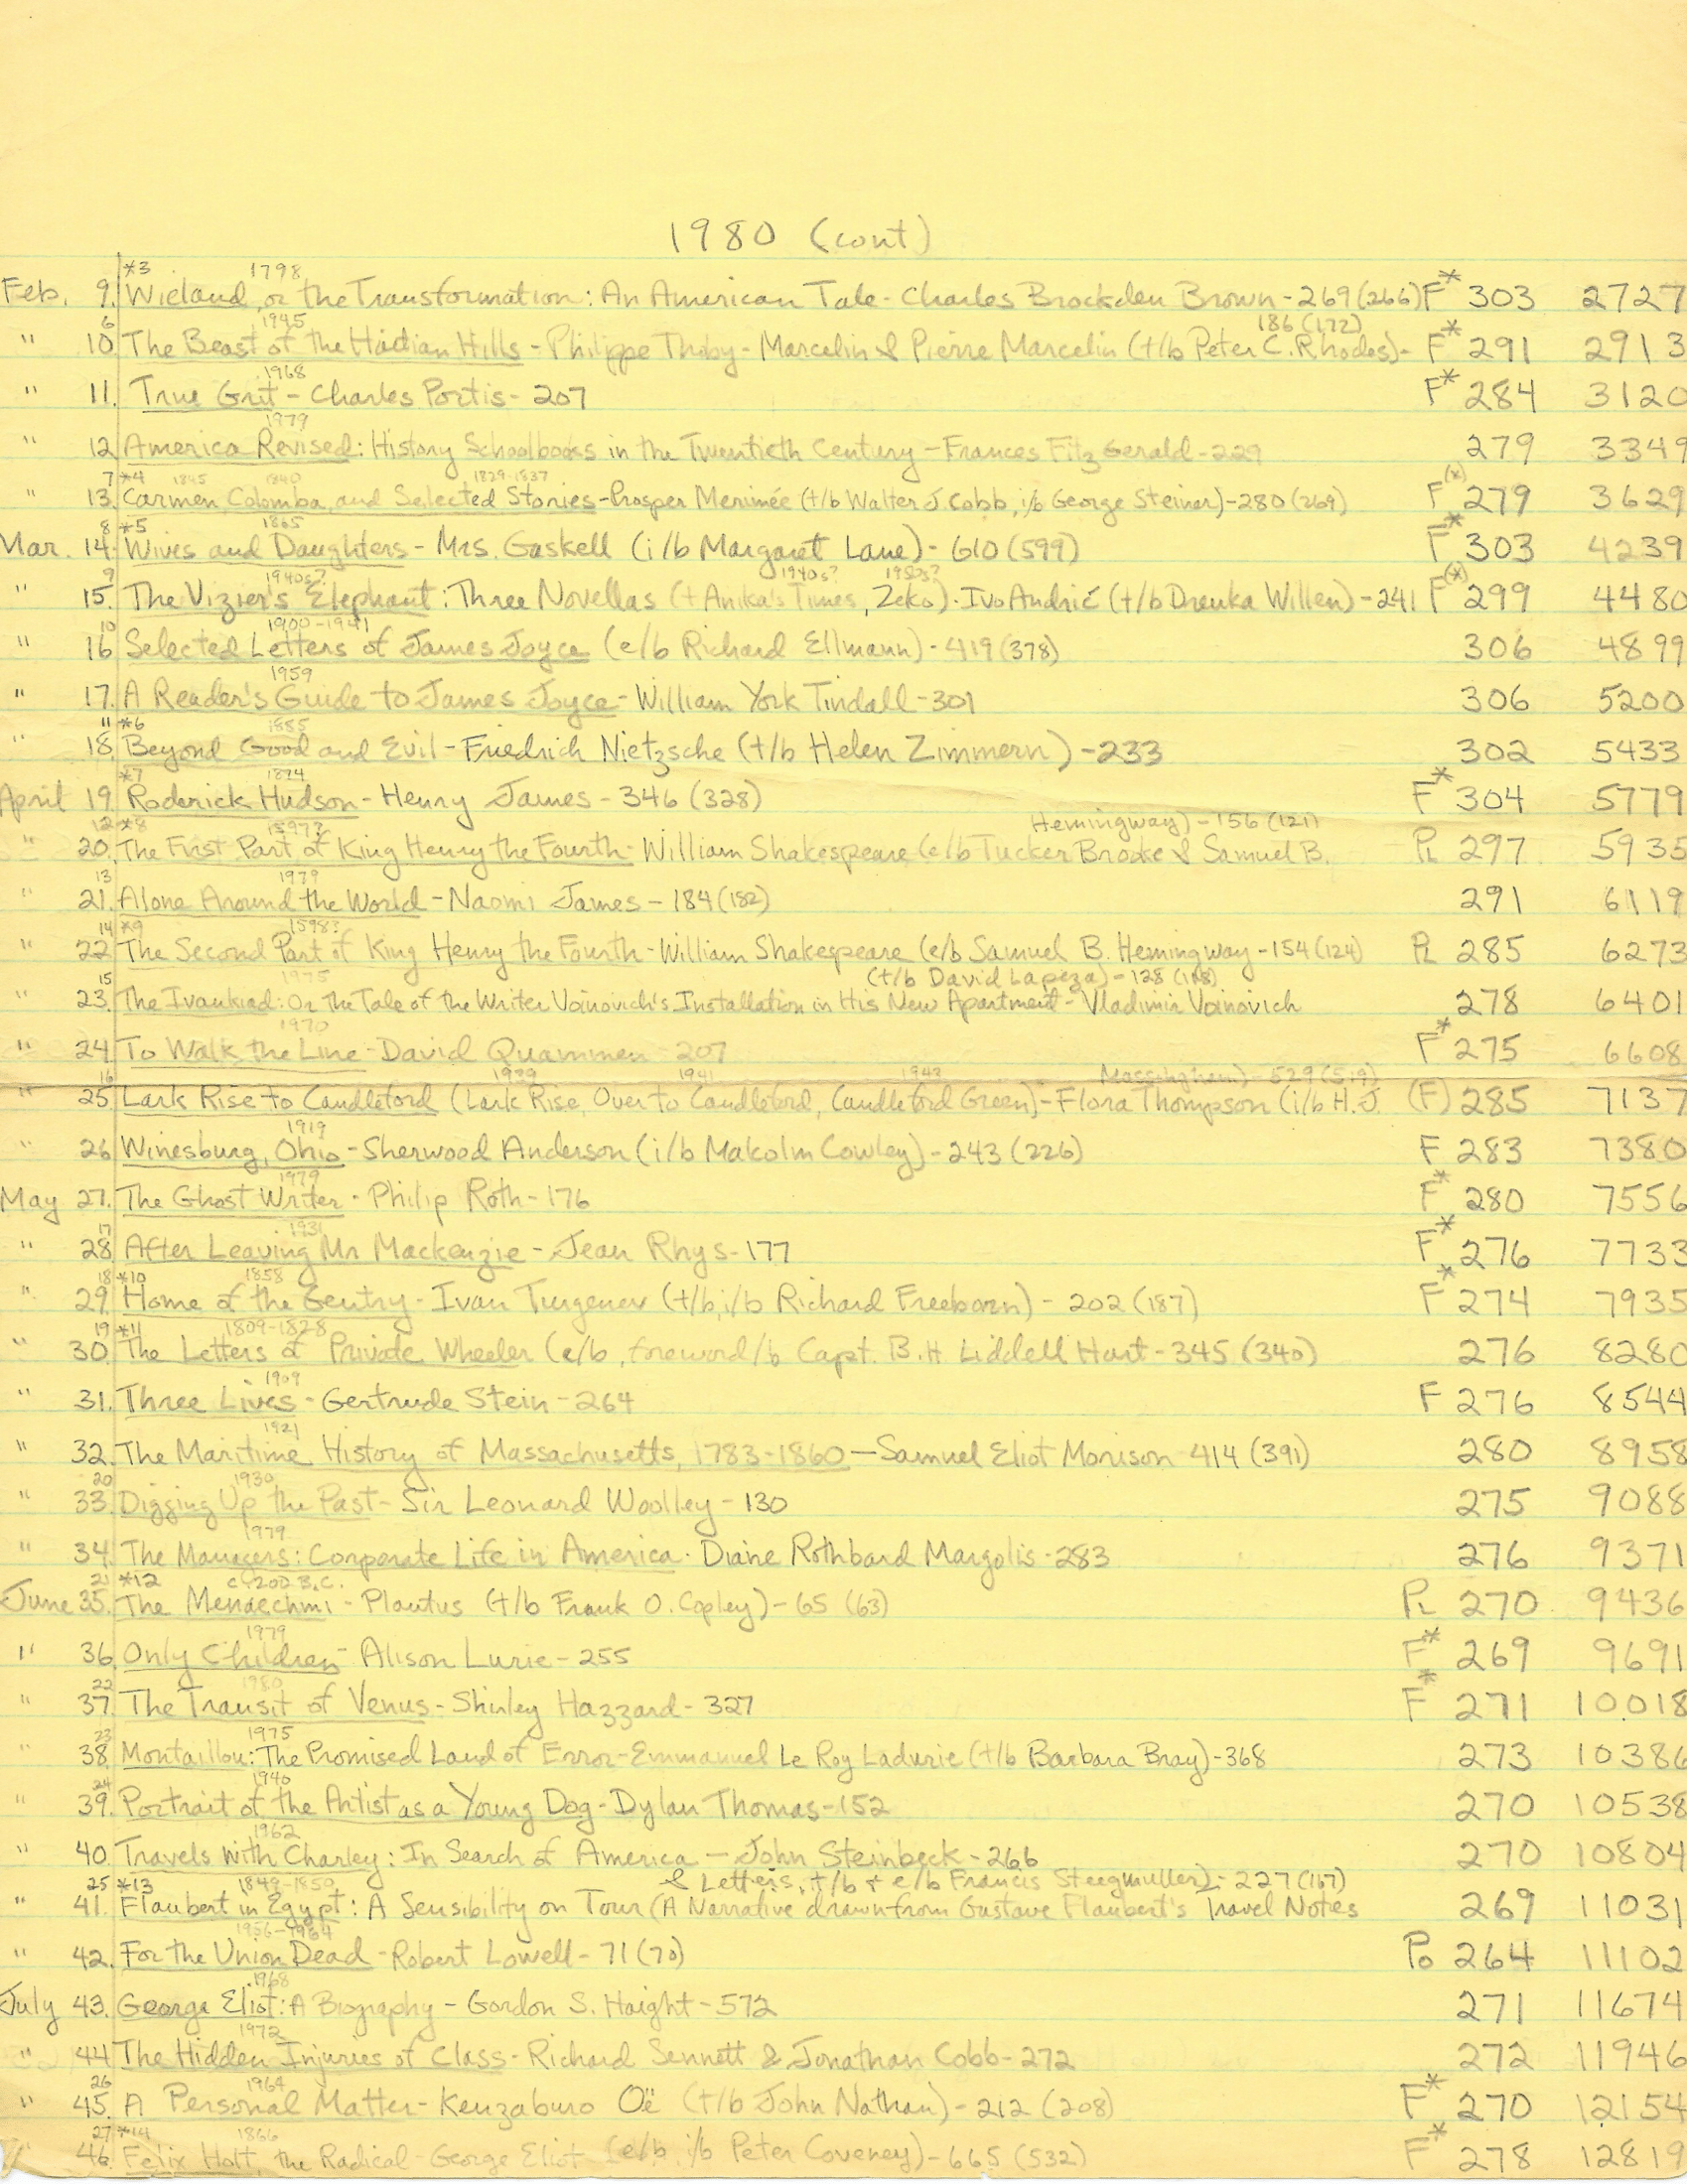 1980 (cont)
*3 1798
Feb. 9. Wieland, or the Transformation: An American Tale - Charles Brockden Brown - 269 (266) F* 303 2727
6 1945 186 (172)
" 10. The Beast of the Haitian Hills - Philippe Thoby-Marcelin & Pierre Marcelin (t/b Peter C. Rhodes) - F* 291 2913
1968
" 11. True Grit - Charles Portis - 207 F* 284 3120
1979
" 12. America Revised: History Schoolbooks in the Twentieth Century - Frances FitzGerald - 229 279 3349
7 *4 1845 1840 1829-1837
" 13. Carmen, Colomba, and Selected Stories - Prosper Merimée (t/b Walter J Cobb, i/b George Steiner) - 280 (269) F(*) 279 3629
8 *5 1865
Mar. 14. Wives and Daughters - Mrs. Gaskell (i/b Margaret Lane) - 610 (599) F* 303 4239
9 1940s? 1940s? 1950s?
" 15. The Vizier's Elephant: Three Novellas (+ Anika's Times, Zeko) - Ivo Andrić (t/b Drenka Willen) - 241 F(*) 299 4480
10 1900-1941
" 16. Selected Letters of James Joyce (e/b Richard Ellmann) - 419 (378) 306 4899
1959
" 17. A Reader's Guide to James Joyce - William York Tindall - 301 306 5200
11 *6 1885
" 18. Beyond Good and Evil - Friedrich Nietzsche (t/b Helen Zimmern) - 233 302 5433
*7 1874
April 19. Roderick Hudson - Henry James - 346 (328) F* 304 5779
12 *8 1597? Hemingway) - 156 (121)
" 20. The First Part of King Henry the Fourth - William Shakespeare (e/b Tucker Brooke & Samuel B. Pl 297 5935
13 1979
" 21. Alone Around the World - Naomi James - 184 (182) 291 6119
14 *9 1598?
" 22. The Second Part of King Henry the Fourth - William Shakespeare (e/b Samuel B. Hemingway - 154 (124) Pl 285 6273
15 1975 (t/b David Lapeza) - 128 (118)
" 23. The Ivankiad: Or the Tale of the Writer Voinovich's Installation in His New Apartment - Vladimir Voinovich 278 6401
1970
" 24. To Walk the Line - David Quammen - 207 F* 275 6608
16 1939 1941 1943 Massingham) - 529 (519)
" 25. Lark Rise to Candleford (Lark Rise, Over to Candleford, Candleford Green) - Flora Thompson (i/b H.J. (F) 285 7137
1919
" 26. Winesburg, Ohio - Sherwood Anderson (i/b Malcolm Cowley) - 243 (226) F 283 7380
1979
May 27. The Ghost Writer - Philip Roth - 176 F* 280 7556
17 1931
" 28. After Leaving Mr Mackenzie - Jean Rhys - 177 F* 276 7733
18 *10 1858
" 29. Home of the Gentry - Ivan Turgenev (t/b, i/b Richard Freeborn) - 202 (187) F* 274 7935
19 *11 1809-1828
" 30. The Letters of Private Wheeler (e/b, foreword/b Capt. B.H Liddell Hart - 345 (340) 276 8280
1909
" 31. Three Lives - Gertrude Stein - 264 F 276 8544
1921
" 32. The Maritime History of Massachusetts, 1783-1860 - Samuel Eliot Morison - 414 (391) 280 8958
20 1930
" 33. Digging Up the Past - Sir Leonard Woolley - 130 275 9088
1979
" 34. The Managers: Corporate Life in America - Diane Rothbard Margolis - 283 276 9371
21 *12 c. 200 B.C.
June 35. The Menaechmi - Plautus (t/b Frank O. Copley) - 65 (63) Pl 270 9436
1979
" 36. Only Children - Alison Lurie - 255 F* 269 9691
22 1980
" 37. The Transit of Venus - Shirley Hazzard - 327 F* 271 10018
23 1975
" 38. Montaillou: The Promised Land of Error - Emmanuel Le Roy Ladurie (t/b Barbara Bray) - 368 273 10386
24 1940
" 39. Portrait of the Artist as a Young Dog - Dylan Thomas - 152 270 10538
1962
" 40. Travels with Charley: In Search of America - John Steinbeck - 266 270 10804
25 *13 1849-1850 & Letters, t/b & e/b Francis Steegmuller) - 227 (167)
" 41. Flaubert in Egypt: A Sensibility on Tour (A Narrative drawn from Gustave Flaubert's Travel Notes 269 11031
1956-1964
" 42. For the Union Dead - Robert Lowell - 71 (70) Po 264 11102
1968
July 43. George Eliot: A Biography - Gordon S. Haight - 572 271 11674
1972
" 44. The Hidden Injuries of Class - Richard Sennett & Jonathan Cobb - 272 272 11946
26 1964
" 45. A Personal Matter - Kenzaburo Oë (t/b John Nathan) - 212 (208) F* 270 12154
27 *14 1866
" 46. Felix Holt, the Radical - George Eliot (e/b, i/b Peter Coveney) - 665 (532) F* 278 12819